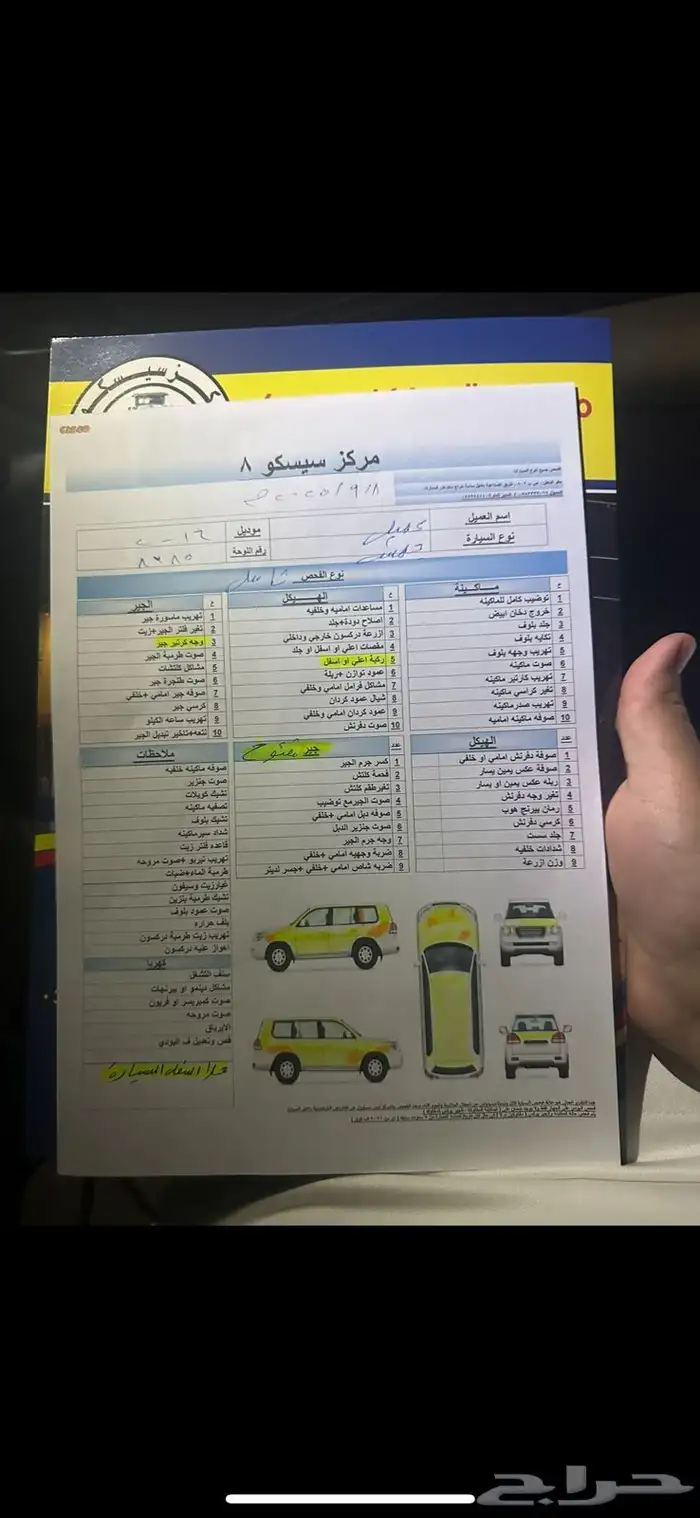 مركز سيسكو
مركز سيسكو ٨
فحص جميع انواع السيارات
اسم العميل
عميل
موديل
نوع السيارة
رقم اللوحة
٨٧٨٥
نوع الفحص
شامل
ماكينة
1 توضيب كامل للماكينه
2 خروج دخان ابيض
3 جلد بلوف
4 تكايه بلوف
5 تهريب وجهه بلوف
6 صوت ماكينه
7 تهريب كارتير ماكينه
8 تغير كراسي ماكينه
9 تهريب صدرماكينه
10 صوفه ماكينه اماميه
الهيكل
1 مساعدات اماميه وخلفيه
2 اصلاح دودة+جلد
3 ازرعة دركسون خارجي وداخلي
4 مقصات اعلي او اسفل او جلد
5 ركبة اعلي او اسفل
6 عمود توازن +ربلة
7 مشاكل فرامل امامي وخلفي
8 شيال عمود كردان
9 عمود كردان امامي وخلفي
10 صوت دفرنش
الجير
1 تهريب ماسورة جير
2 تغير فلتر الجير+زيت
3 وجه كرتير جير
4 صوت طرمبة الجير
5 مشاكل كلتشات
6 صوت طنجرة جير
7 صوفه جير امامي +خلفي
8 كرسي جير
9 تهريب ساعه الكيلو
10 نتعه+تاخير تبديل الجير
الهيكل
1 صوفة دفرنش امامي او خلفي
2 صوفة عكس يمين يسار
3 ربله عكس يمين او يسار
4 تغير وجه دفرنش
5 رمان بيرنج هوب
6 كرسي دفرنش
7 جلد سست
8 شدادات خلفيه
9 وزن ازرعة
عدد
جير مفتوح
1 كسر جرم الجير
2 فحمة كلتش
3 تغيرطقم كلتش
4 صوت الجيرمع توضيب
5 صوفه دبل امامي +خلفي
6 صوت جنزير الدبل
7 وجه جرم الجير
8 ضربة وجهيه امامي +خلفي
9 ضربه شاص امامي +خلفي +جسر لديتر
عدد
ملاحظات
صوفه ماكينه خلفيه
صوت جنزير
تشيك كويلات
تصفيه ماكينه
تشيك بلوف
شداد سيرماكينه
قاعده فلتر زيت
تهريب تيربو +صوت مروحه
طرمبة الماء+ضبات
غيارزيت وسيفون
تشيك طرمبة بنزين
صوت عمود بلوف
بلف حراره
تهريب زيت طرمبة دركسون
اهواز علبه دركسون
كهربا
سلف التشغل
مشاكل دينمو او بيرنهات
صوت كمبريسر او فريون
صوت مروحه
الايرباق
قص وتعديل ف البودي
جلد اسفل السيارة
حراج